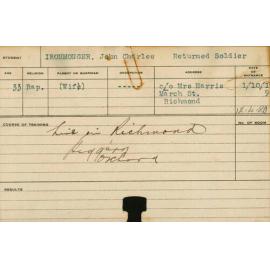 STUDENT IRONMONGER, John Charles Returned Soldier
AGE RELIGION PARENT OR GUARDIAN OCCUPATION ADDRESS DATE OF ENTRANCE
33 Bap. (Wife) ---- c/o Mrs Harris 1/10/1
March St. 9
Richmond
COURSE OF TRAINING NO. OF ROOM
Live in Richmond
RESULTS